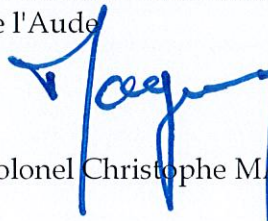 e l'Aude
olonel Christophe MA